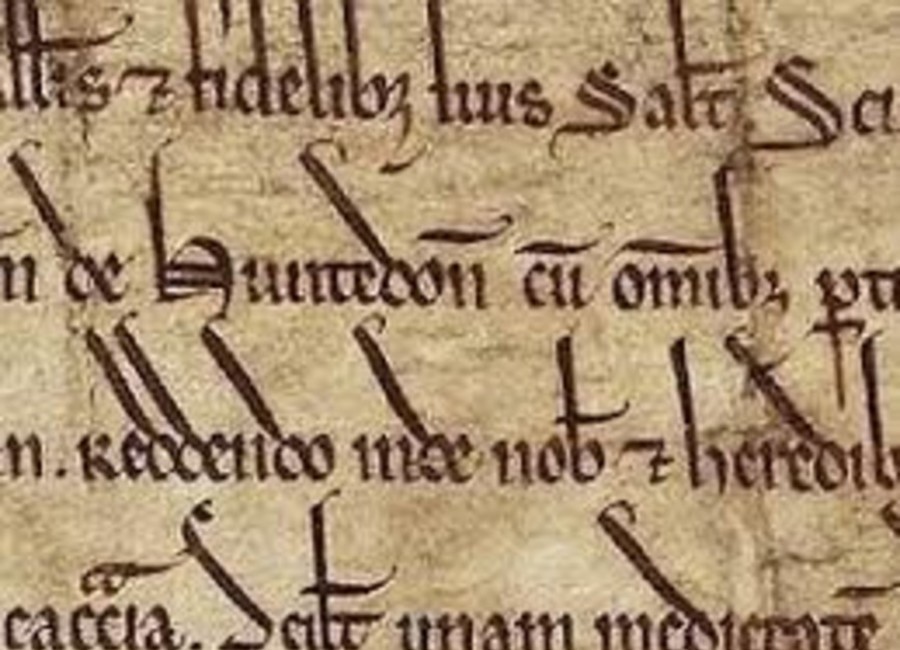 ⁊ fidelibꝫ suis Saɫt Sci
de Huntedon̄ cū om̄ibꝫ ꝑti
n. Reddendo inde nob̄ ⁊ heredib
caccia. Sciɫt unam medietatē